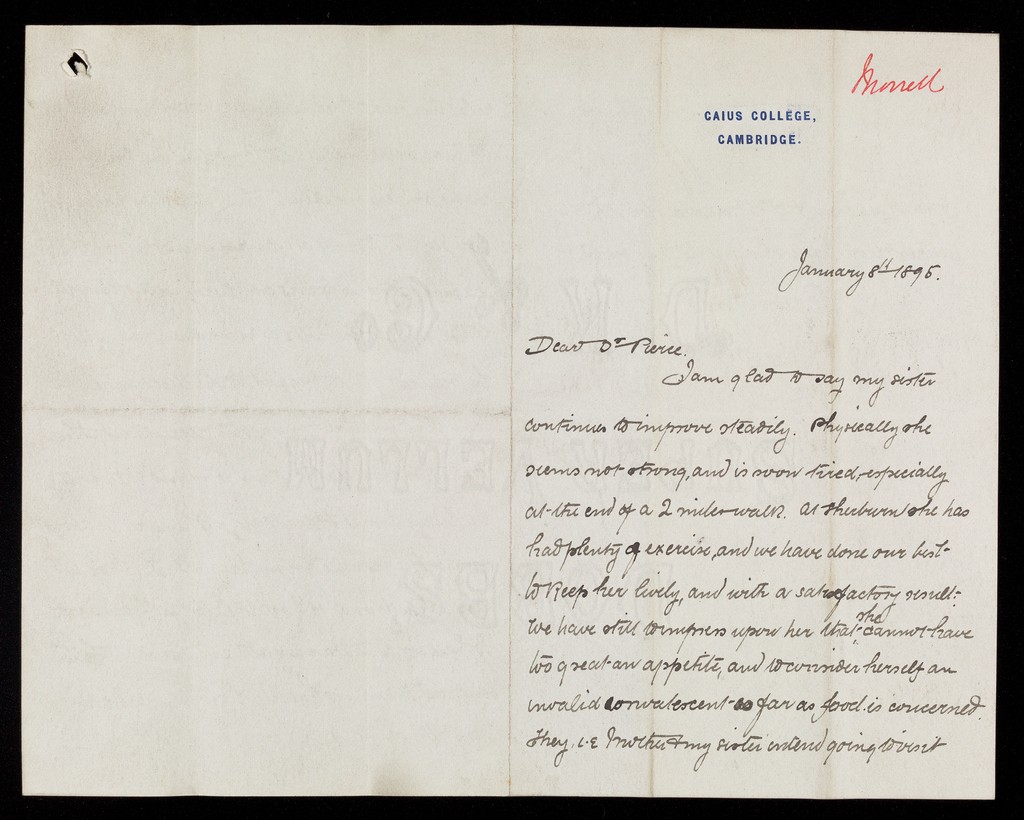 Morrell
CAIUS COLLEGE,
CAMBRIDGE.
January 8th 1895.
Dear Dr Pierce.
I am glad to say my sister
continues to improve steadily. Physically she
seems not strong, and is soon tired, especially
at the end of a 2 miles walk. At Sherburn she has
had plenty of exercise, and we have done our best
to keep her lively, and with a satisfactory result:
we have still to impress upon her that she cannot have
too great an appetite, and to consider herself an
invalid convalescent so far as food is concerned.
They, i.e Mother & my sister intend going to visit